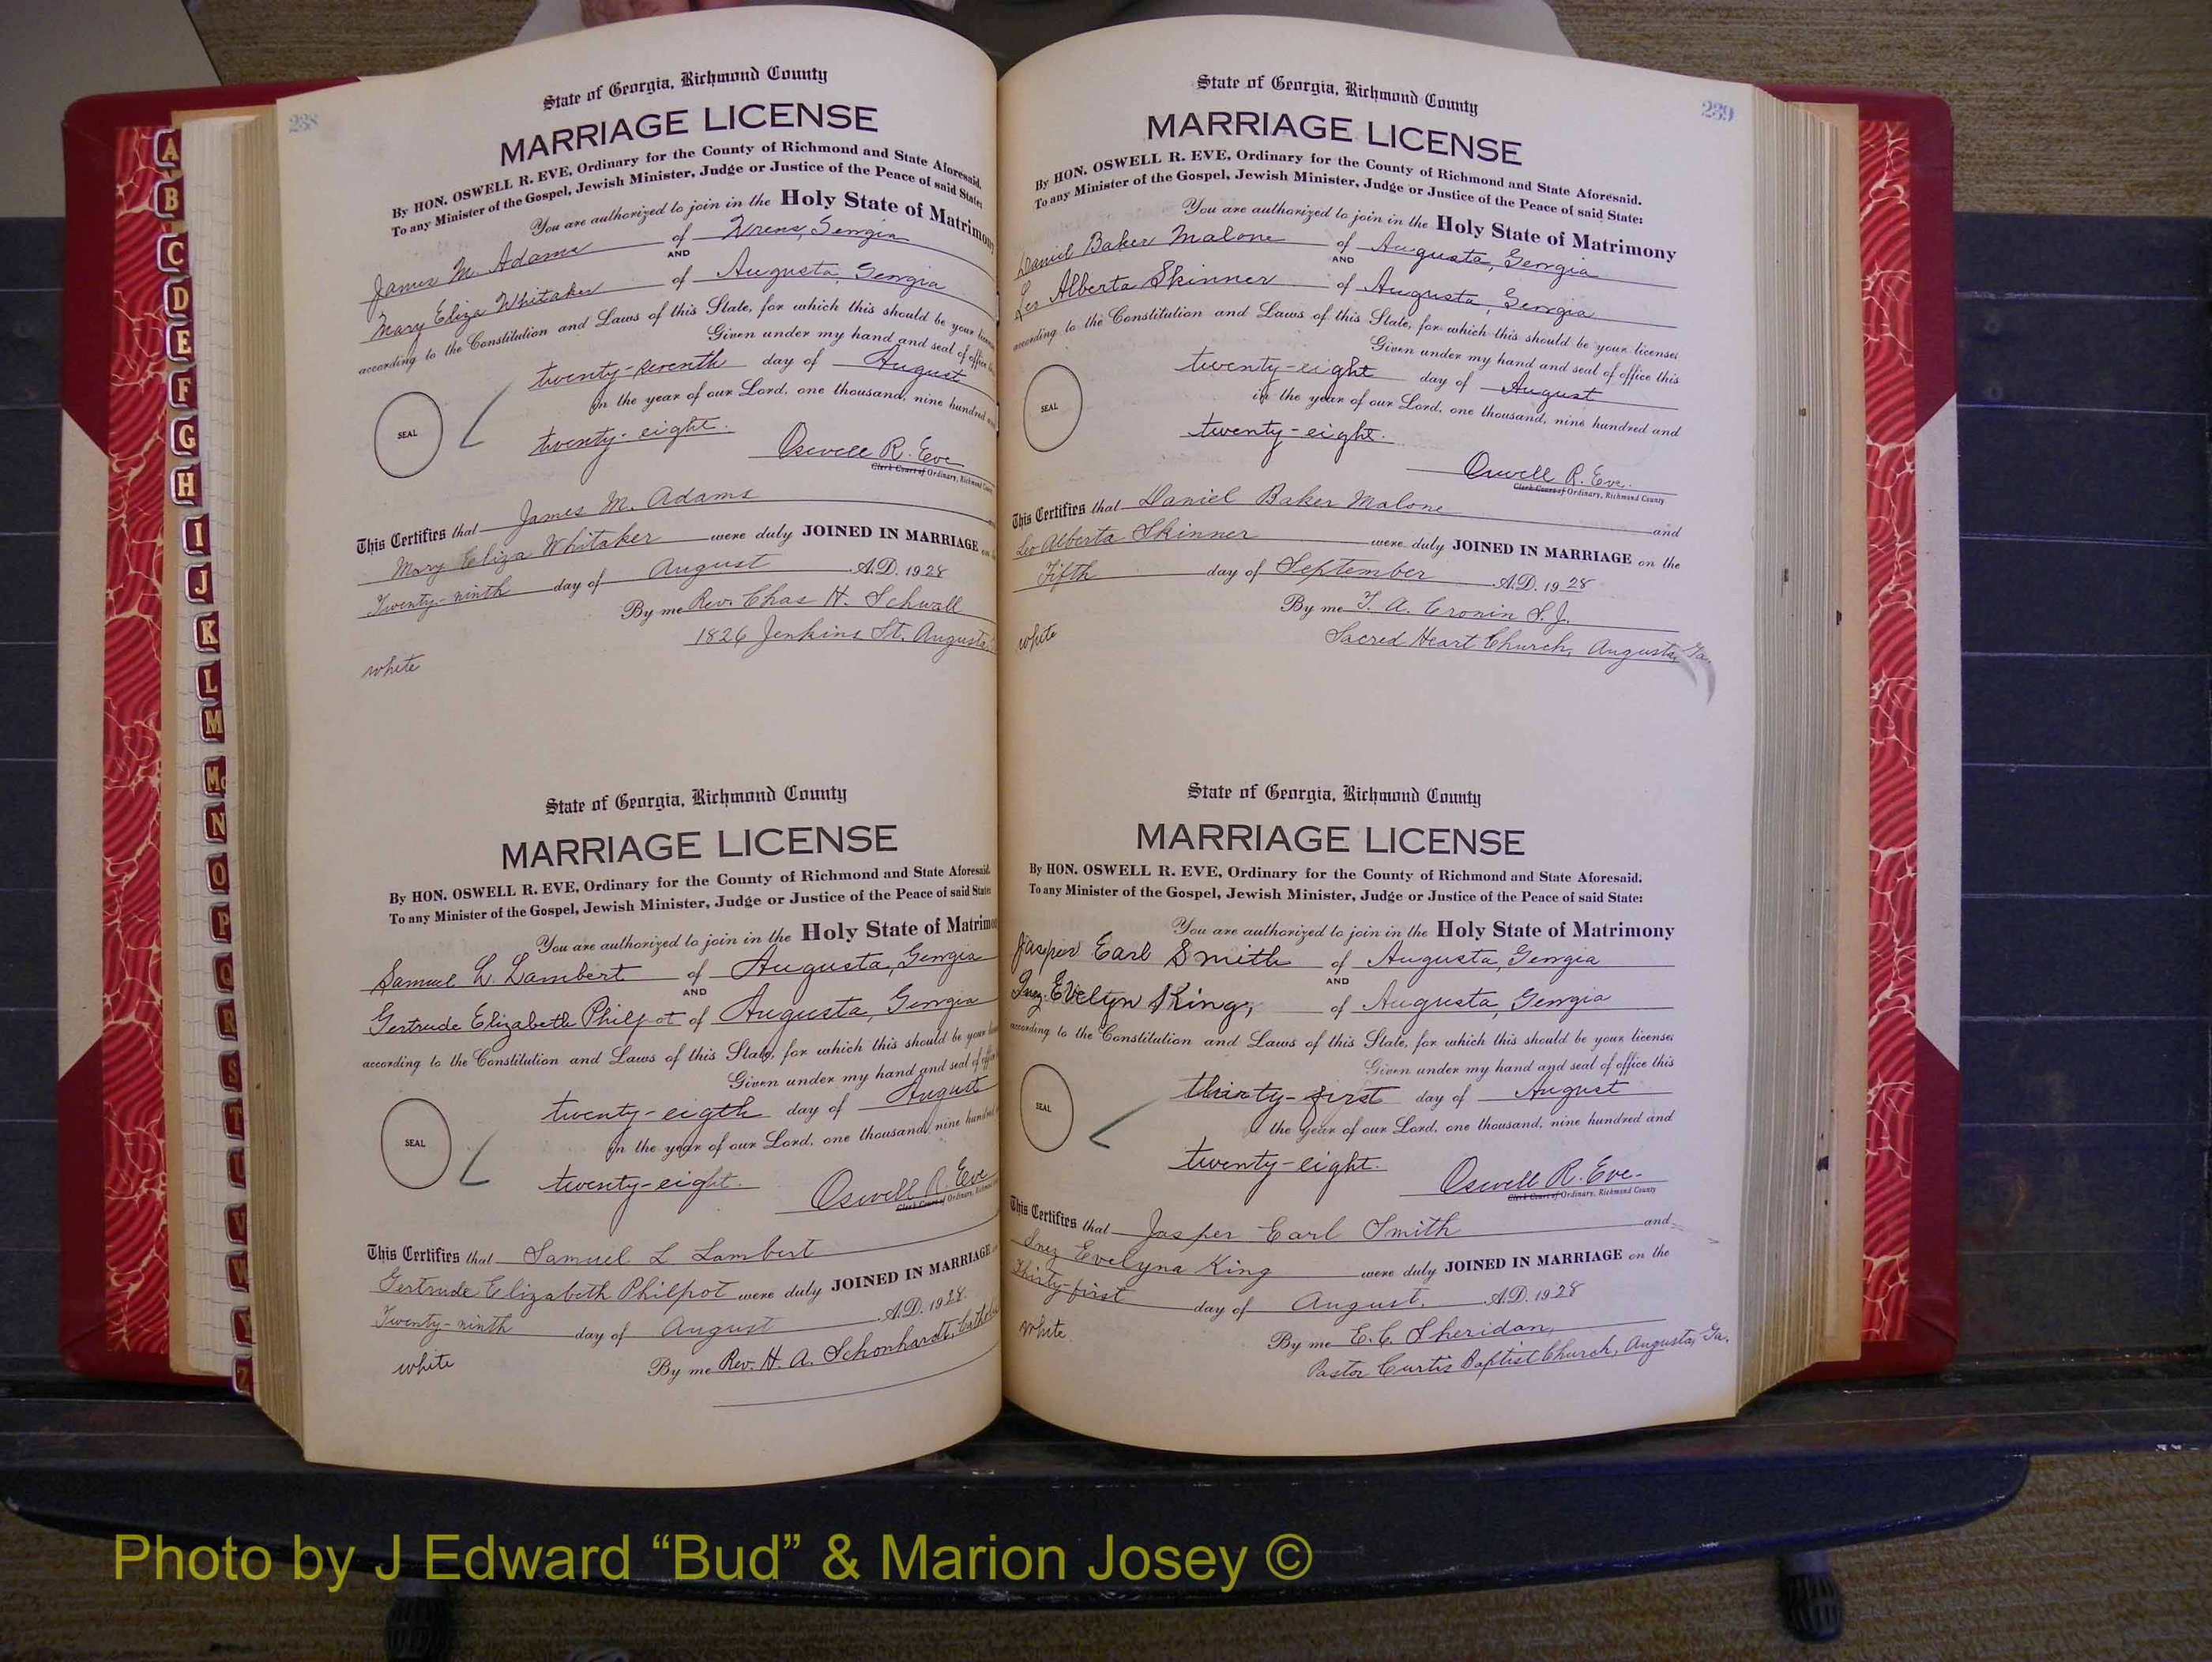 238
State of Georgia, Richmond County
MARRIAGE LICENSE
By HON. OSWELL R. EVE, Ordinary for the County of Richmond and State Aforesaid.
To any Minister of the Gospel, Jewish Minister, Judge or Justice of the Peace of said State:
You are authorized to join in the Holy State of Matrimony
James M. Adams of Wrens, Georgia
AND
Mary Eliza Whitaker of Augusta, Georgia
according to the Constitution and Laws of this State, for which this should be your license
Given under my hand and seal of office
twenty-seventh day of August
In the year of our Lord, one thousand, nine hundred
SEAL
twenty-eight.
Oswell R. Eve
Clerk Court of Ordinary, Richmond County
This Certifies that James M. Adams
Mary Eliza Whitaker were duly JOINED IN MARRIAGE on
Twenty-ninth day of August A.D. 1928
By me Rev. Chas H. Schwall
1826 Jenkins St. Augusta
white
State of Georgia, Richmond County
MARRIAGE LICENSE
By HON. OSWELL R. EVE, Ordinary for the County of Richmond and State Aforesaid.
To any Minister of the Gospel, Jewish Minister, Judge or Justice of the Peace of said State:
You are authorized to join in the Holy State of Matrimo
Samuel L. Lambert of Augusta, Georgia
AND
Gertrude Elizabeth Philpot of Augusta, Georgia
according to the Constitution and Laws of this State, for which this should be your
Given under my hand and seal of office
twenty-eigth day of August
In the year of our Lord, one thousand, nine hundred
SEAL
twenty-eight.
Oswell R. Eve
Clerk Court of Ordinary, Richmond
This Certifies that Samuel L Lambert
Gertrude Elizabeth Philpot were duly JOINED IN MARRIAGE
Twenty-ninth day of August A.D. 1928.
white By me Rev. H. A. Schonhardt,
239
State of Georgia, Richmond County
MARRIAGE LICENSE
By HON. OSWELL R. EVE, Ordinary for the County of Richmond and State Aforesaid.
To any Minister of the Gospel, Jewish Minister, Judge or Justice of the Peace of said State:
You are authorized to join in the Holy State of Matrimony
Daniel Baker Malone of Augusta, Georgia
AND
Leo Alberta Skinner of Augusta, Georgia
according to the Constitution and Laws of this State, for which this should be your license;
Given under my hand and seal of office this
twenty-eight day of August
in the year of our Lord, one thousand, nine hundred and
SEAL
twenty-eight.
Oswell R. Eve.
Clerk Court of Ordinary, Richmond County
This Certifies that Daniel Baker Malone and
Leo Alberta Skinner were duly JOINED IN MARRIAGE on the
Fifth day of September A.D. 1928
By me T. A. Cronin S. J.
white Sacred Heart Church, Augusta, Ga.
State of Georgia, Richmond County
MARRIAGE LICENSE
By HON. OSWELL R. EVE, Ordinary for the County of Richmond and State Aforesaid.
To any Minister of the Gospel, Jewish Minister, Judge or Justice of the Peace of said State:
You are authorized to join in the Holy State of Matrimony
Jasper Earl Smith of Augusta, Georgia
AND
Inez Evelyn King, of Augusta, Georgia
according to the Constitution and Laws of this State, for which this should be your license;
Given under my hand and seal of office this
thirty-first day of August
the year of our Lord, one thousand, nine hundred and
SEAL
twenty-eight.
Oswell R. Eve-
Clerk Court of Ordinary, Richmond County
This Certifies that Jasper Earl Smith and
Inez Evelyna King were duly JOINED IN MARRIAGE on the
Thirty-first day of August. A.D. 1928
white By me E. C. Sheridan,
Pastor Curtis Baptist Church, Augusta, Ga.
A
B
C
D
E
F
G
H
I
J
K
L
M
Mc
N
O
P
Q
R
S
T
U
V
W
Y
Z
Photo by J Edward “Bud” & Marion Josey ©